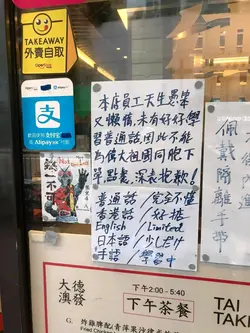 TAKEAWAY
外賣自取
OpenRice
支
Alipay
缺一不可
本店員工天生愚笨
又懶惰,未有好好學
習普通話,因此不能
為偉大祖國同胞下
單點餐,深表抱歉!
普通話/完全不懂
香港話/好掂
English/Limited
日本語/少しだけ
手語/學習中
佩戴隔離手帶
大德
澳發
下午2:00 - 5:40
下午茶餐
TAI
TAI
G. 炸雞脾配青蘋果沙律